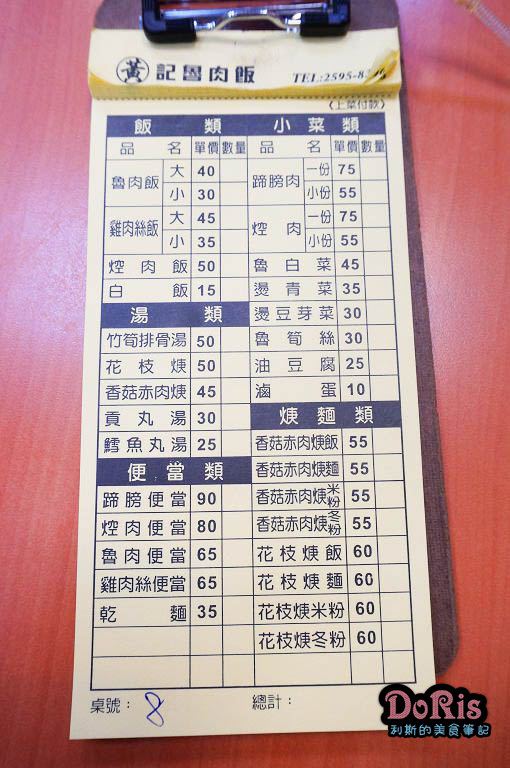 黃記魯肉飯 TEL:2595-8
(上菜付款)
飯類
品名 單價 數量
魯肉飯 大 40
小 30
雞肉絲飯 大 45
小 35
焢肉飯 50
白飯 15
湯類
竹筍排骨湯 50
花枝焿 50
香菇赤肉焿 45
貢丸湯 30
鱈魚丸湯 25
便當類
蹄膀便當 90
焢肉便當 80
魯肉便當 65
雞肉絲便當 65
乾麵 35
小菜類
品名 單價 數量
蹄膀肉 一份 75
小份 55
焢肉 一份 75
小份 55
魯白菜 45
燙青菜 35
燙豆芽菜 30
魯筍絲 30
油豆腐 25
滷蛋 10
焿麵類
香菇赤肉焿飯 55
香菇赤肉焿麵 55
香菇赤肉焿米粉 55
香菇赤肉焿冬粉 55
花枝焿飯 60
花枝焿麵 60
花枝焿米粉 60
花枝焿冬粉 60
桌號：8
總計：
DoRis
利斯的美食筆記